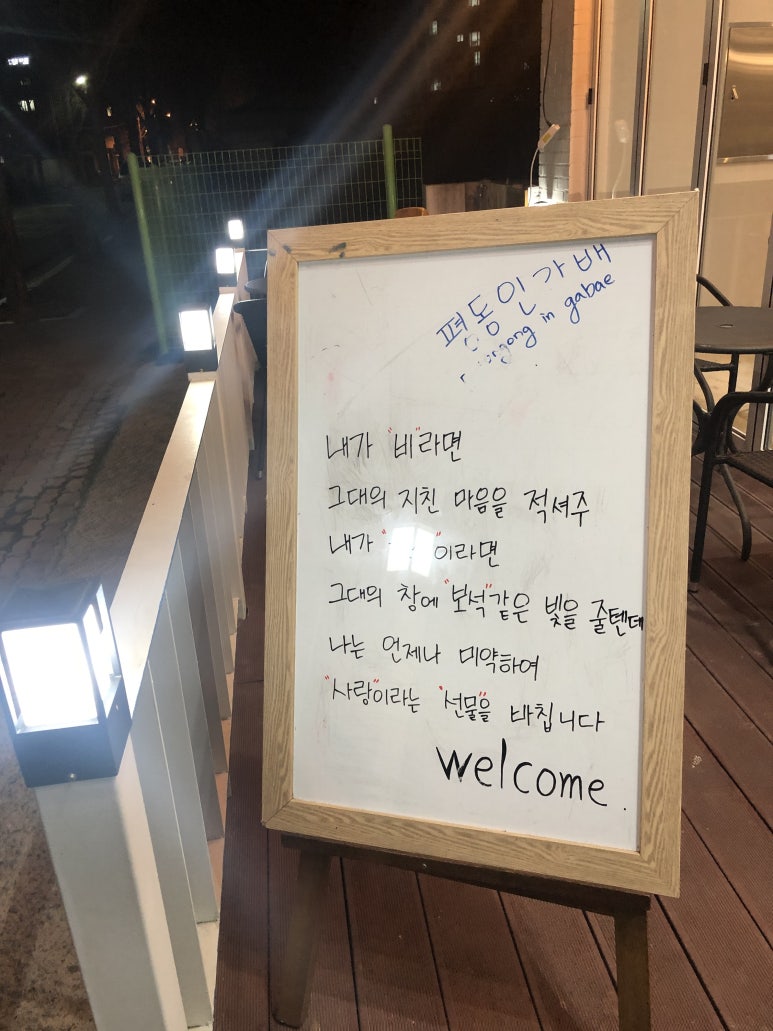 평동인가배
in gabae
내가 "비"라면
그대의 지친 마음을 적셔주
내가 " "이라면
그대의 창에 "보석"같은 빛을 줄텐데
나는 언제나 미약하여
"사랑"이라는 "선물"을 바칩니다
welcome.